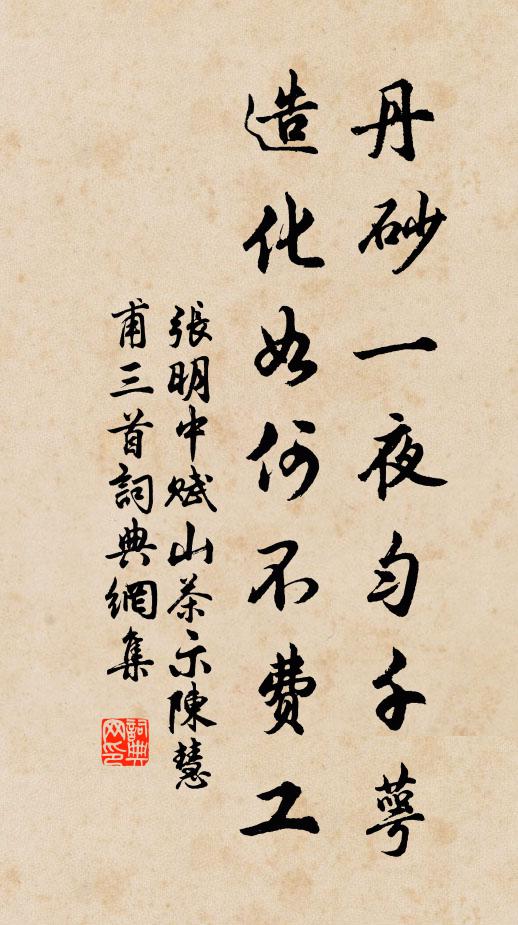 丹砂一夜勻千萼
造化如何不費工
張明中賦山茶示陳慧
甫三首詞典網集
詞典
网印